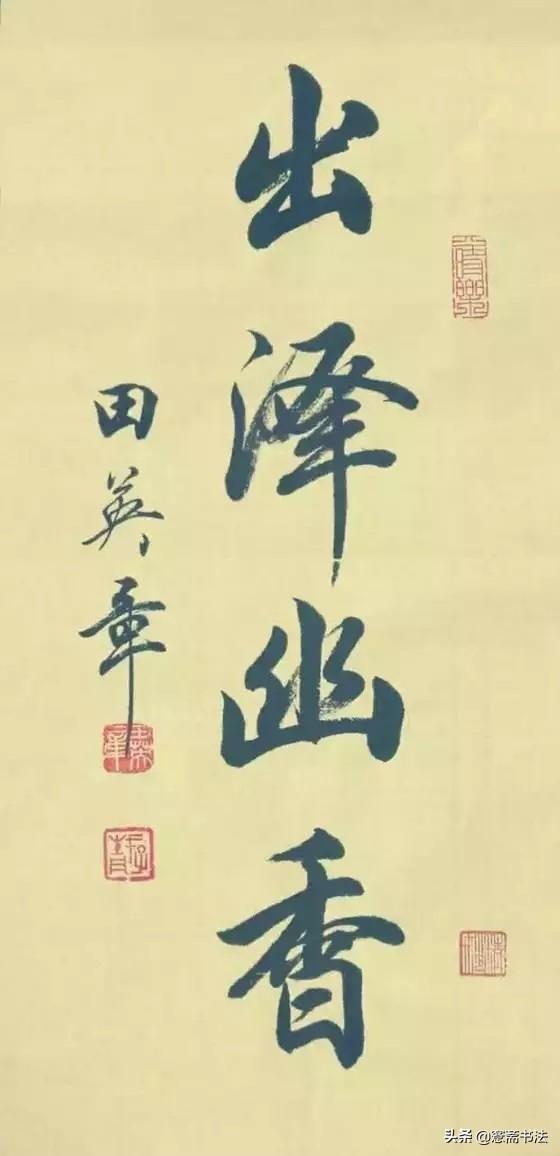 出泽幽香
田英章
头条 @愙斋书法